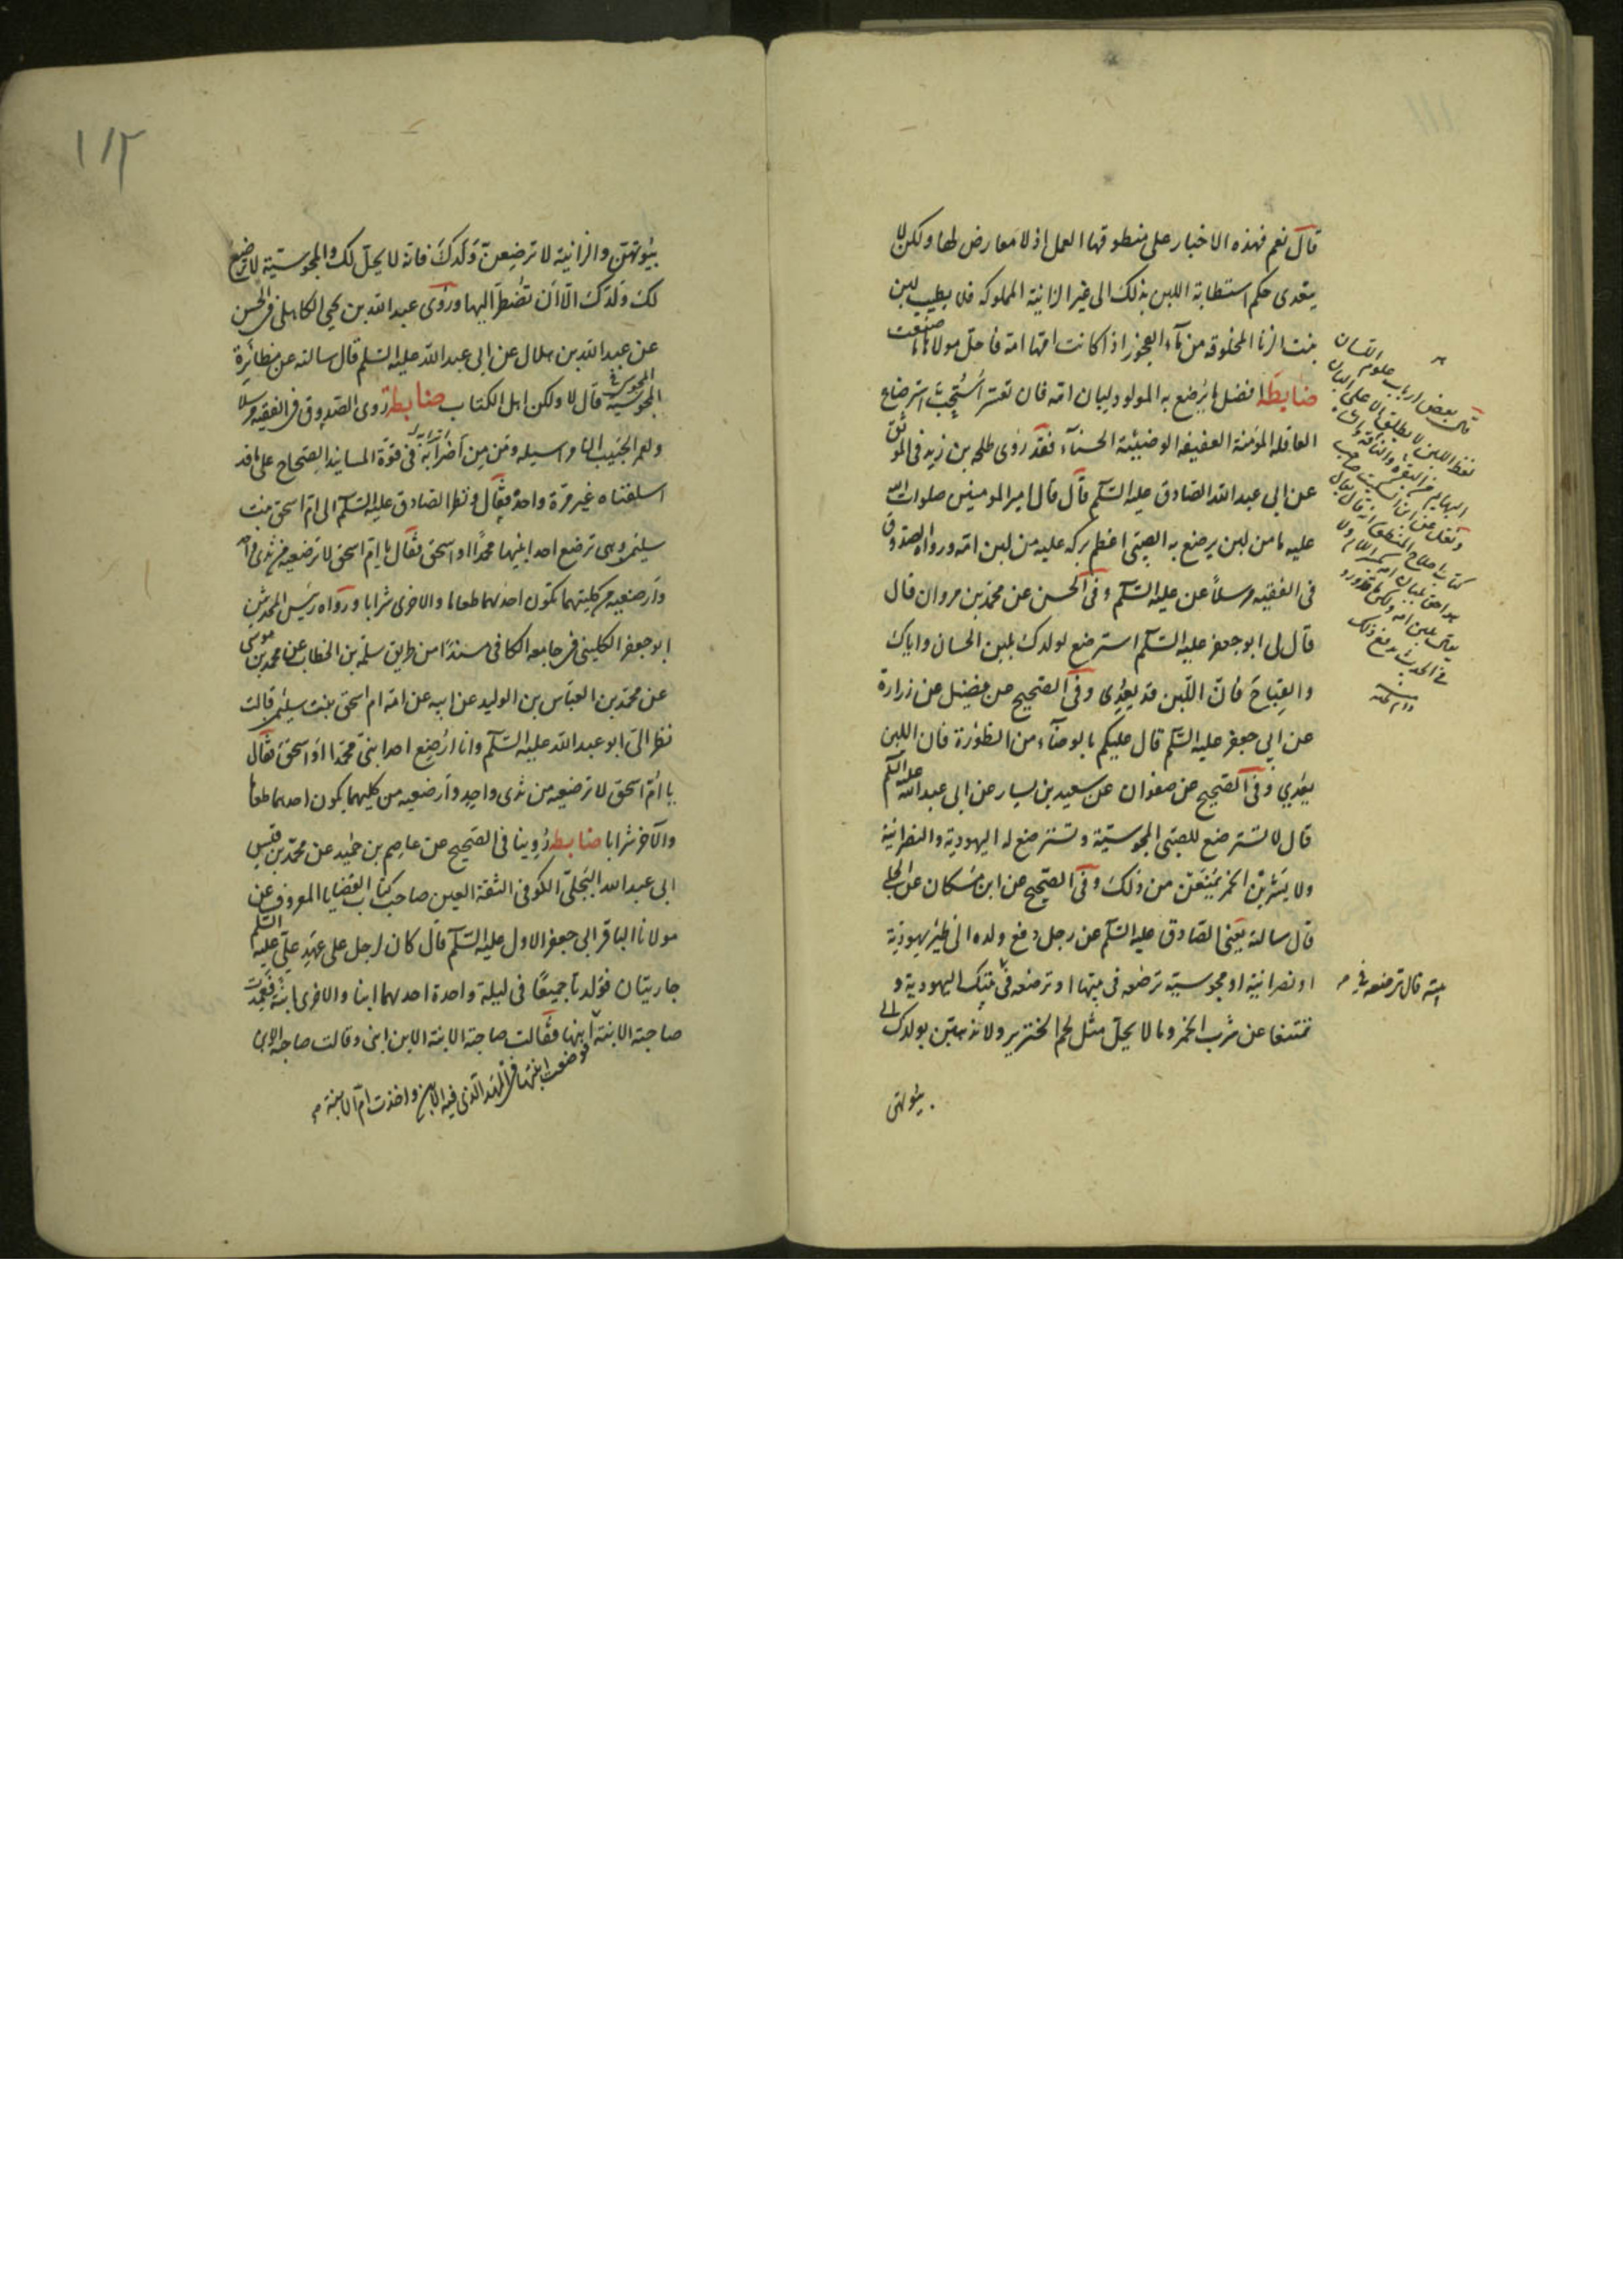 قال نعم فهذه الاخبار على منطوقها العمل اذ لا معارض لها ولكن لا
يتعدى حكم استطابة اللبن بذلك الى غير الزانية المملوكه فلا يطيب لبن
بنت الزنا المخلوقه من ماء الفجور اذا كانت امها امة فاحل مولاها ما صنعت
ضابطة افضل ما يرضع به المولود لبان امه فان تعسر استحب استرضاع
العاقلة المؤمنة العفيفه الوضيئة الحسناء فقد روى طلحه بن زيد فى الموثق
عن ابى عبد الله الصادق عليه السلام قال قال امير المومنين صلوات الله
عليه ما من لبن يرضع به الصبى اعظم بركه عليه من لبن امه ورواه الصدوق
فى الفقيه مرسلا عنه عليه السلام وفى الحسن عن محمد بن مروان قال
قال لى ابو جعفر عليه السلام استرضع لولدك بلبن الحسان واياك
والقباح فان اللبن قد يعدى وفى الصحيح عن فضيل عن زرارة
عن ابي جعفر عليه السلام قال عليكم بالوضاء من الظؤرة فان اللبن
يعدي وفى الصحيح عن صفوان عن سعيد بن يسار عن ابى عبد الله عليه السلام
قال لا تسترضع للصبى المجوسية وتسترضع له اليهودية والنصرانية
ولا يشربن الخمر يمنعن من ذلك وفى الصحيح عن ابن مسكان عن الحلبى
قال سالته يعنى الصادق عليه السلام عن رجل دفع ولده الى ظئر يهودية
او نصرانية او مجوسية ترضعه فى بيتها او ترضعه فى بيتك اليهودية و
تمنعها من شرب الخمر وما لا يحل مثل لحم الخنزير ولا تذهبن بولدك الى
بيوتهن
قال بعض ارباب علوم اللسان
لفظ اللبن لا يطلق الا على البان
البهايم من البقره والناقة والشاة
ونقل عن ابن السكيت صاحب
كتاب اصلاح المنطق انه قال يقال
هو اخوه بلبان امه بكسر اللام ولا
يقال بلبن امه ولكن ما قد ورد
فى الحديث يدفع ذلك
بيته قال ترضعه فى
١١٢
بيوتهن والزانية لا ترضعن ولدك فانه لا يحل لك والمجوسية لا ترضع
لك ولدك الا ان تضطر اليها وروى عبد الله بن يحيى الكاهلى فى الحسن
عن عبد الله بن هلال عن ابى عبد الله عليه السلام قال سالته عن مظائرة
المجوسية قال لا ولكن اهل الكتاب ضابطة روى الصدوق فى الفقيه مرسلا
ومن اضرابه فى قوة المسانيد الصحاح على ما قد
اسلفناه غير مرة واحدة فقال ونظر الصادق عليه السلام الى ام اسحق بنت
سليمن وهى ترضع احد ابنيها محمدا او اسحق فقال يا ام اسحق لا ترضعيه من ثدى واحد
وارضعيه من كليهما يكون احدهما طعاما والاخرى شرابا ورواه رئيس المحدثين
ابو جعفر الكلينى فى جامعه الكافى مسندا من طريق سلمة بن الخطاب عن محمد بن موسى
عن محمد بن العباس بن الوليد عن ابيه عن امه ام اسحق بنت سليمن قالت
نظر الى ابو عبد الله عليه السلام وانا ارضع احد ابنى محمدا او اسحق فقال
يا ام اسحق لا ترضعيه من ثدى واحد وارضعيه من كليهما يكون احدهما طعاما
والآخر شرابا ضابطة روينا فى الصحيح عن عاصم بن حميد عن محمد بن قيس
ابى عبد الله البجلى الكوفى الثقة العين صاحب كتاب القضايا المعروف عن
مولانا الباقر ابى جعفر الاول عليه السلام قال كان لرجل على عهد على عليه السلام
جاريتان فولدتا جميعا فى ليلة واحدة احدهما ابنا والاخرى ابنة فعمدت
صاحبة الابنة ابنها فقالت صاحبة الابنة الابن ابنى وقالت صاحبة الابن
فوضعت ابنتها فى المهد الذى فيه الابن واخذت ام الابنة